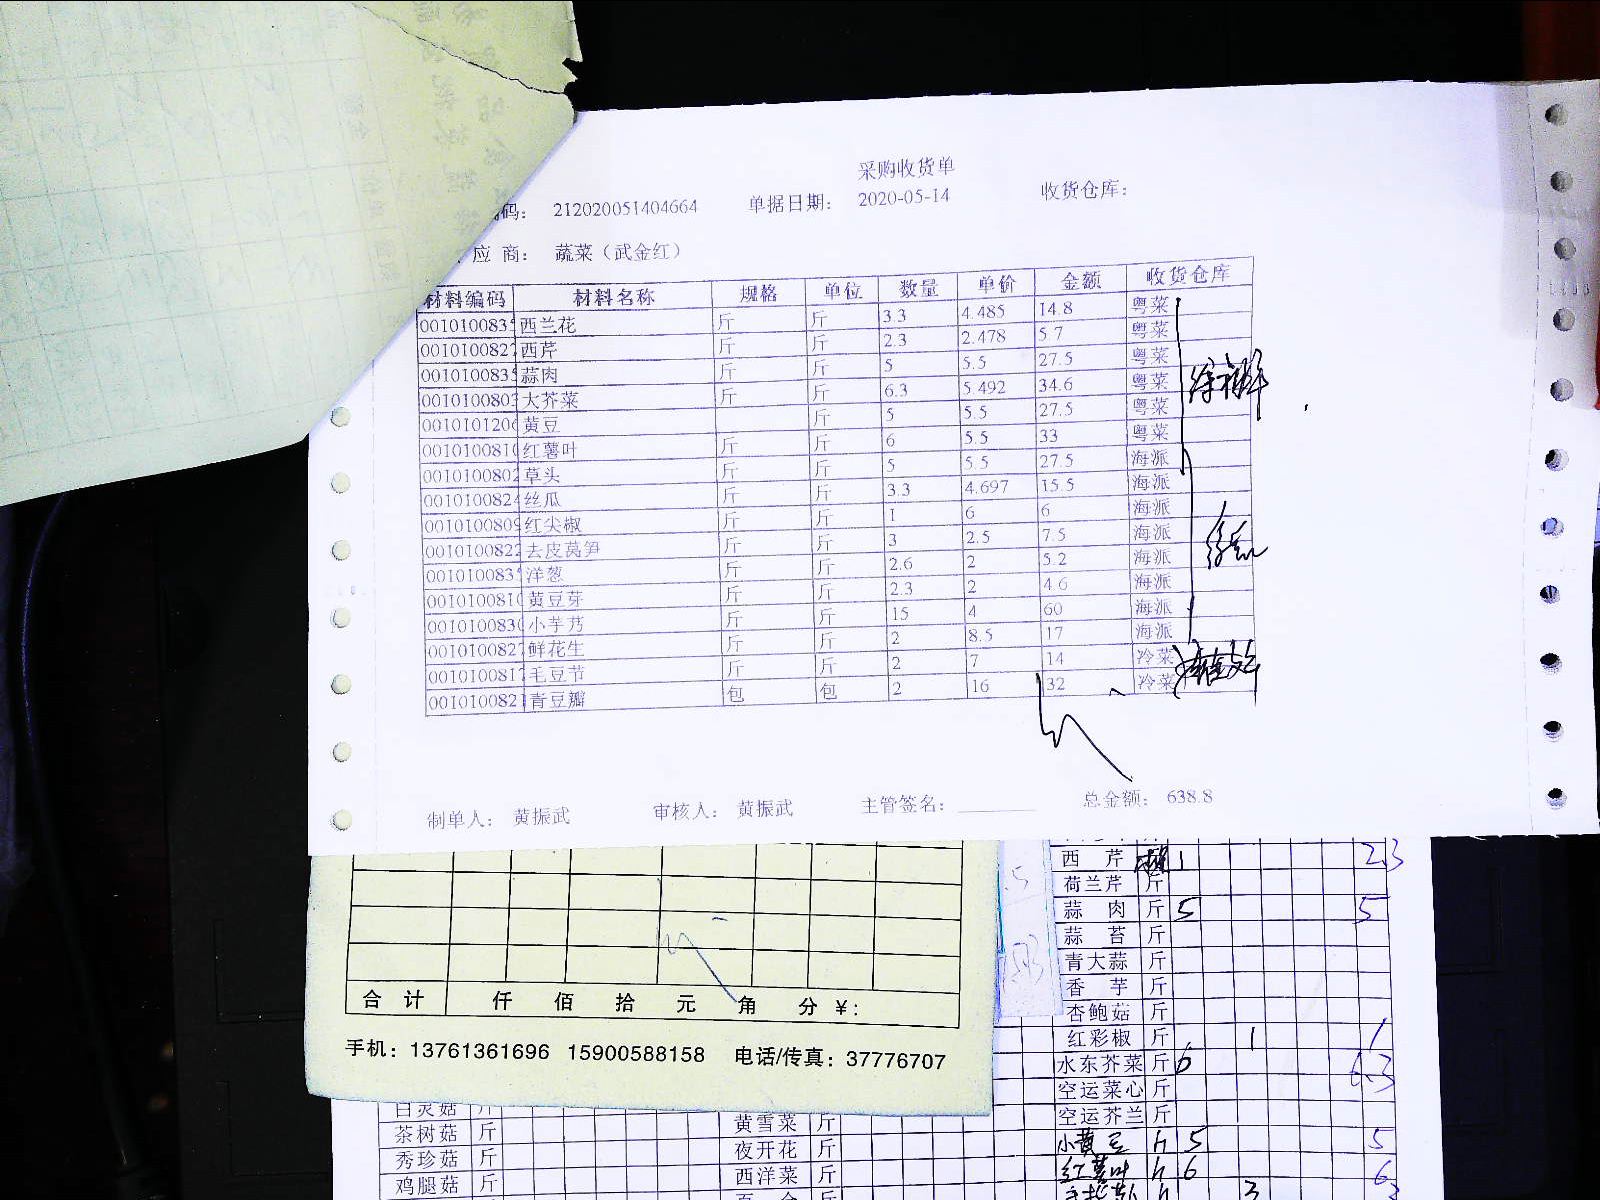 采购收货单
码： 212020051404664 单据日期： 2020-05-14 收货仓库：
应 商： 蔬菜（武金红）
材料编码 材料名称 规格 单位 数量 单价 金额 收货仓库
001010083 西兰花 斤 斤 3.3 4.485 14.8 粤菜
001010082 西芹 斤 斤 2.3 2.478 5.7 粤菜
001010083 蒜肉 斤 斤 5 5.5 27.5 粤菜
001010080 大芥菜 斤 斤 6.3 5.492 34.6 粤菜
001010120 黄豆 斤 5 5.5 27.5 粤菜
001010081 红薯叶 斤 斤 6 5.5 33 粤菜
001010080 草头 斤 斤 5 5.5 27.5 海派
001010082 丝瓜 斤 斤 3.3 4.697 15.5 海派
001010080 红尖椒 斤 斤 1 6 6 海派
001010082 去皮莴笋 斤 斤 3 2.5 7.5 海派
001010083 洋葱 斤 斤 2.6 2 5.2 海派
001010081 黄豆芽 斤 斤 2.3 2 4.6 海派
001010083 小芋艿 斤 斤 15 4 60 海派
001010082 鲜花生 斤 斤 2 8.5 17 海派
001010081 毛豆节 斤 斤 2 7 14 冷菜
001010082 青豆瓣 包 包 2 16 32 冷菜
制单人： 黄振武 审核人： 黄振武 主管签名： 总金额： 638.8
西 芹 1 2.3
荷兰芹 斤
蒜 肉 斤 5 5
蒜 苔 斤
青大蒜 斤
香 芋 斤
杏鲍菇 斤
红彩椒 斤 1 1
水东芥菜 斤 6 6.3
空运菜心 斤
空运芥兰 斤
小黄豆 斤 5 5
红薯叶 斤 6 6
3
合 计 仟 佰 拾 元 角 分 ￥:
手机：13761361696 15900588158 电话/传真：37776707
白灵菇 斤 黄雪菜 斤
茶树菇 斤 夜开花 斤
秀珍菇 斤 西洋菜 斤
鸡腿菇 斤